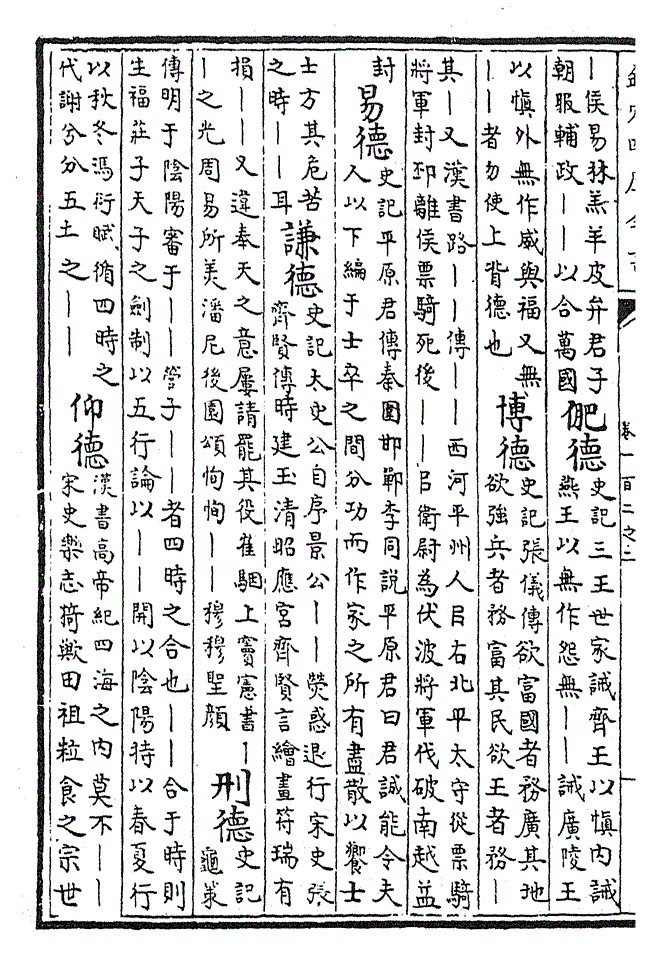 卷一百二之二
｜侯易袜羔羊皮弁君子
朝服輔政｜｜以合萬國
俷德
史記三王世家誡齊王以慎內誡
燕王以無作怨無｜｜誡廣陵王
以慎外無作威與福又無
｜｜者勿使上背德也
博德
史記張儀傳欲富國者務廣其地
欲強兵者務富其民欲王者務｜
其｜又漢書路｜｜傳｜｜西河平州人㠯右北平太守從票騎
將軍封邳離侯票騎死後｜｜㠯衛尉為伏波將軍伐破南越益
封
易德
史記平原君傳秦圍邯鄲李同說平原君曰君誠能令夫
人以下編于士卒之間分功而作家之所有盡散以饗士
士方其危苦
之時｜｜耳
謙德
史記太史公自序景公｜｜熒惑退行宋史張
齊賢傳時建玉清昭應宮齊賢言繪畫符瑞有
損｜｜又違奉天之意屢請罷其役崔駰上竇憲書｜
｜之光周易所美潘尼後園頌恂恂｜｜穆穆聖顏
刑德
史記
龜策
傳明于陰陽審于｜｜管子｜｜者四時之合也｜｜合于時則
生福莊子天子之劍制以五行論以｜｜開以陰陽持以春夏行
以秋冬馮衍賦循四時之
代謝兮分五土之｜｜
仰德
漢書高帝紀四海之內莫不｜｜
宋史樂志猗歟田祖粒食之宗世